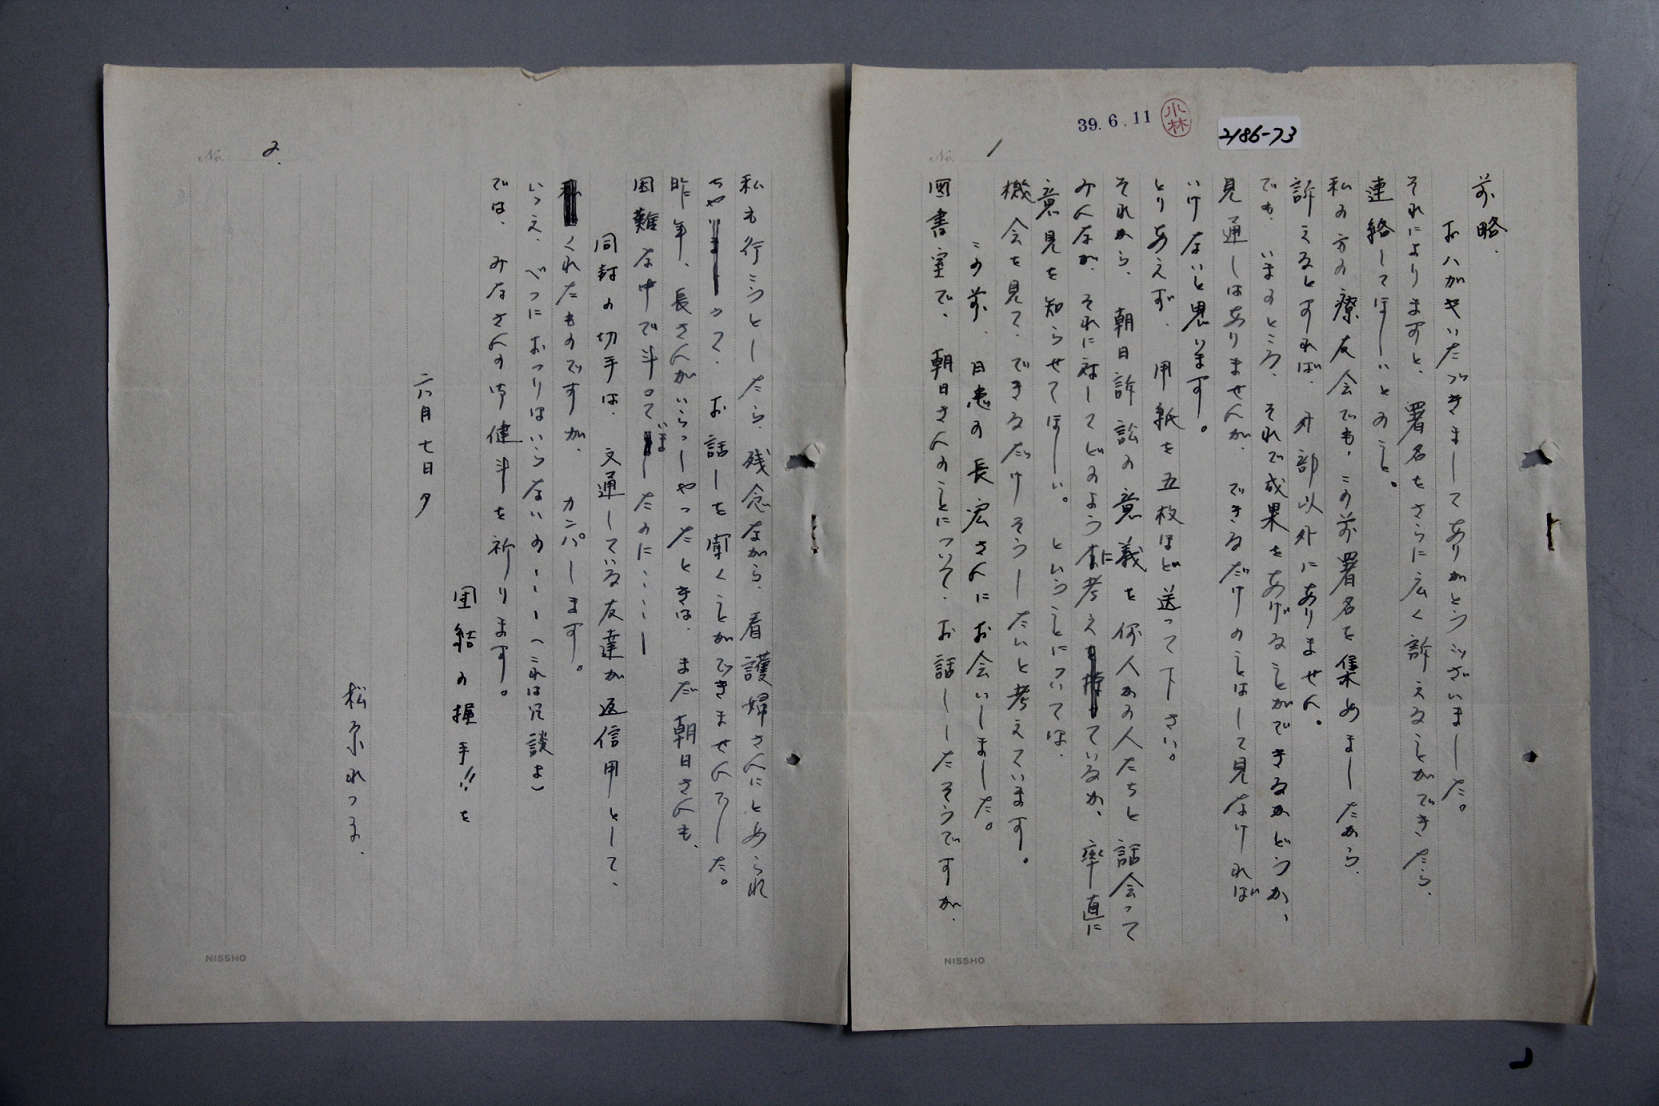 39.6.11
小林
2186-73
No. 1
前略、
おハガキいただきましてありがとうございました。
それによりますと、署名をさらに広く訴えることができたら、
連絡してほしいとのこと。
私の方の療友会でも、この前署名を集めましたから、
訴えるとすれば、外部以外にありません。
でも、いまのところ、それで成果をあげることができるかどうか、
見通しはありませんが、できるだけのことはして見なければ
いけないと思います。
とりあえず、用紙を五枚ほど送って下さい。
それから、朝日訴訟の意義を何人かの人たちと話会って
みんなが、それに対してどのように考えているか、率直に
意見を知らせてほしい。ということについては、
機会を見て、できるだけそうしたいと考えています。
この前、日患の長宏さんにお会いしました。
図書室で、朝日さんのことについて、お話ししたそうですが、
NISSHO
No. 2.
私も行こうとしたら、残念ながら、看護婦さんにとめられ
ちゃって、お話しを聞くことができませんでした。
昨年、長さんがいらっしゃったときは、まだ朝日さんも、
困難な中で斗っていましたのに・・・・
同封の切手は、文通している友達が返信用として、
くれたものですが、カンパします。
いいえ、べつにおつりはいらないの・・・(これは冗談よ)
では、みなさんの御健斗を祈ります。
団結の握手!!を
六月七日夕
松原れつ子、
NISSHO